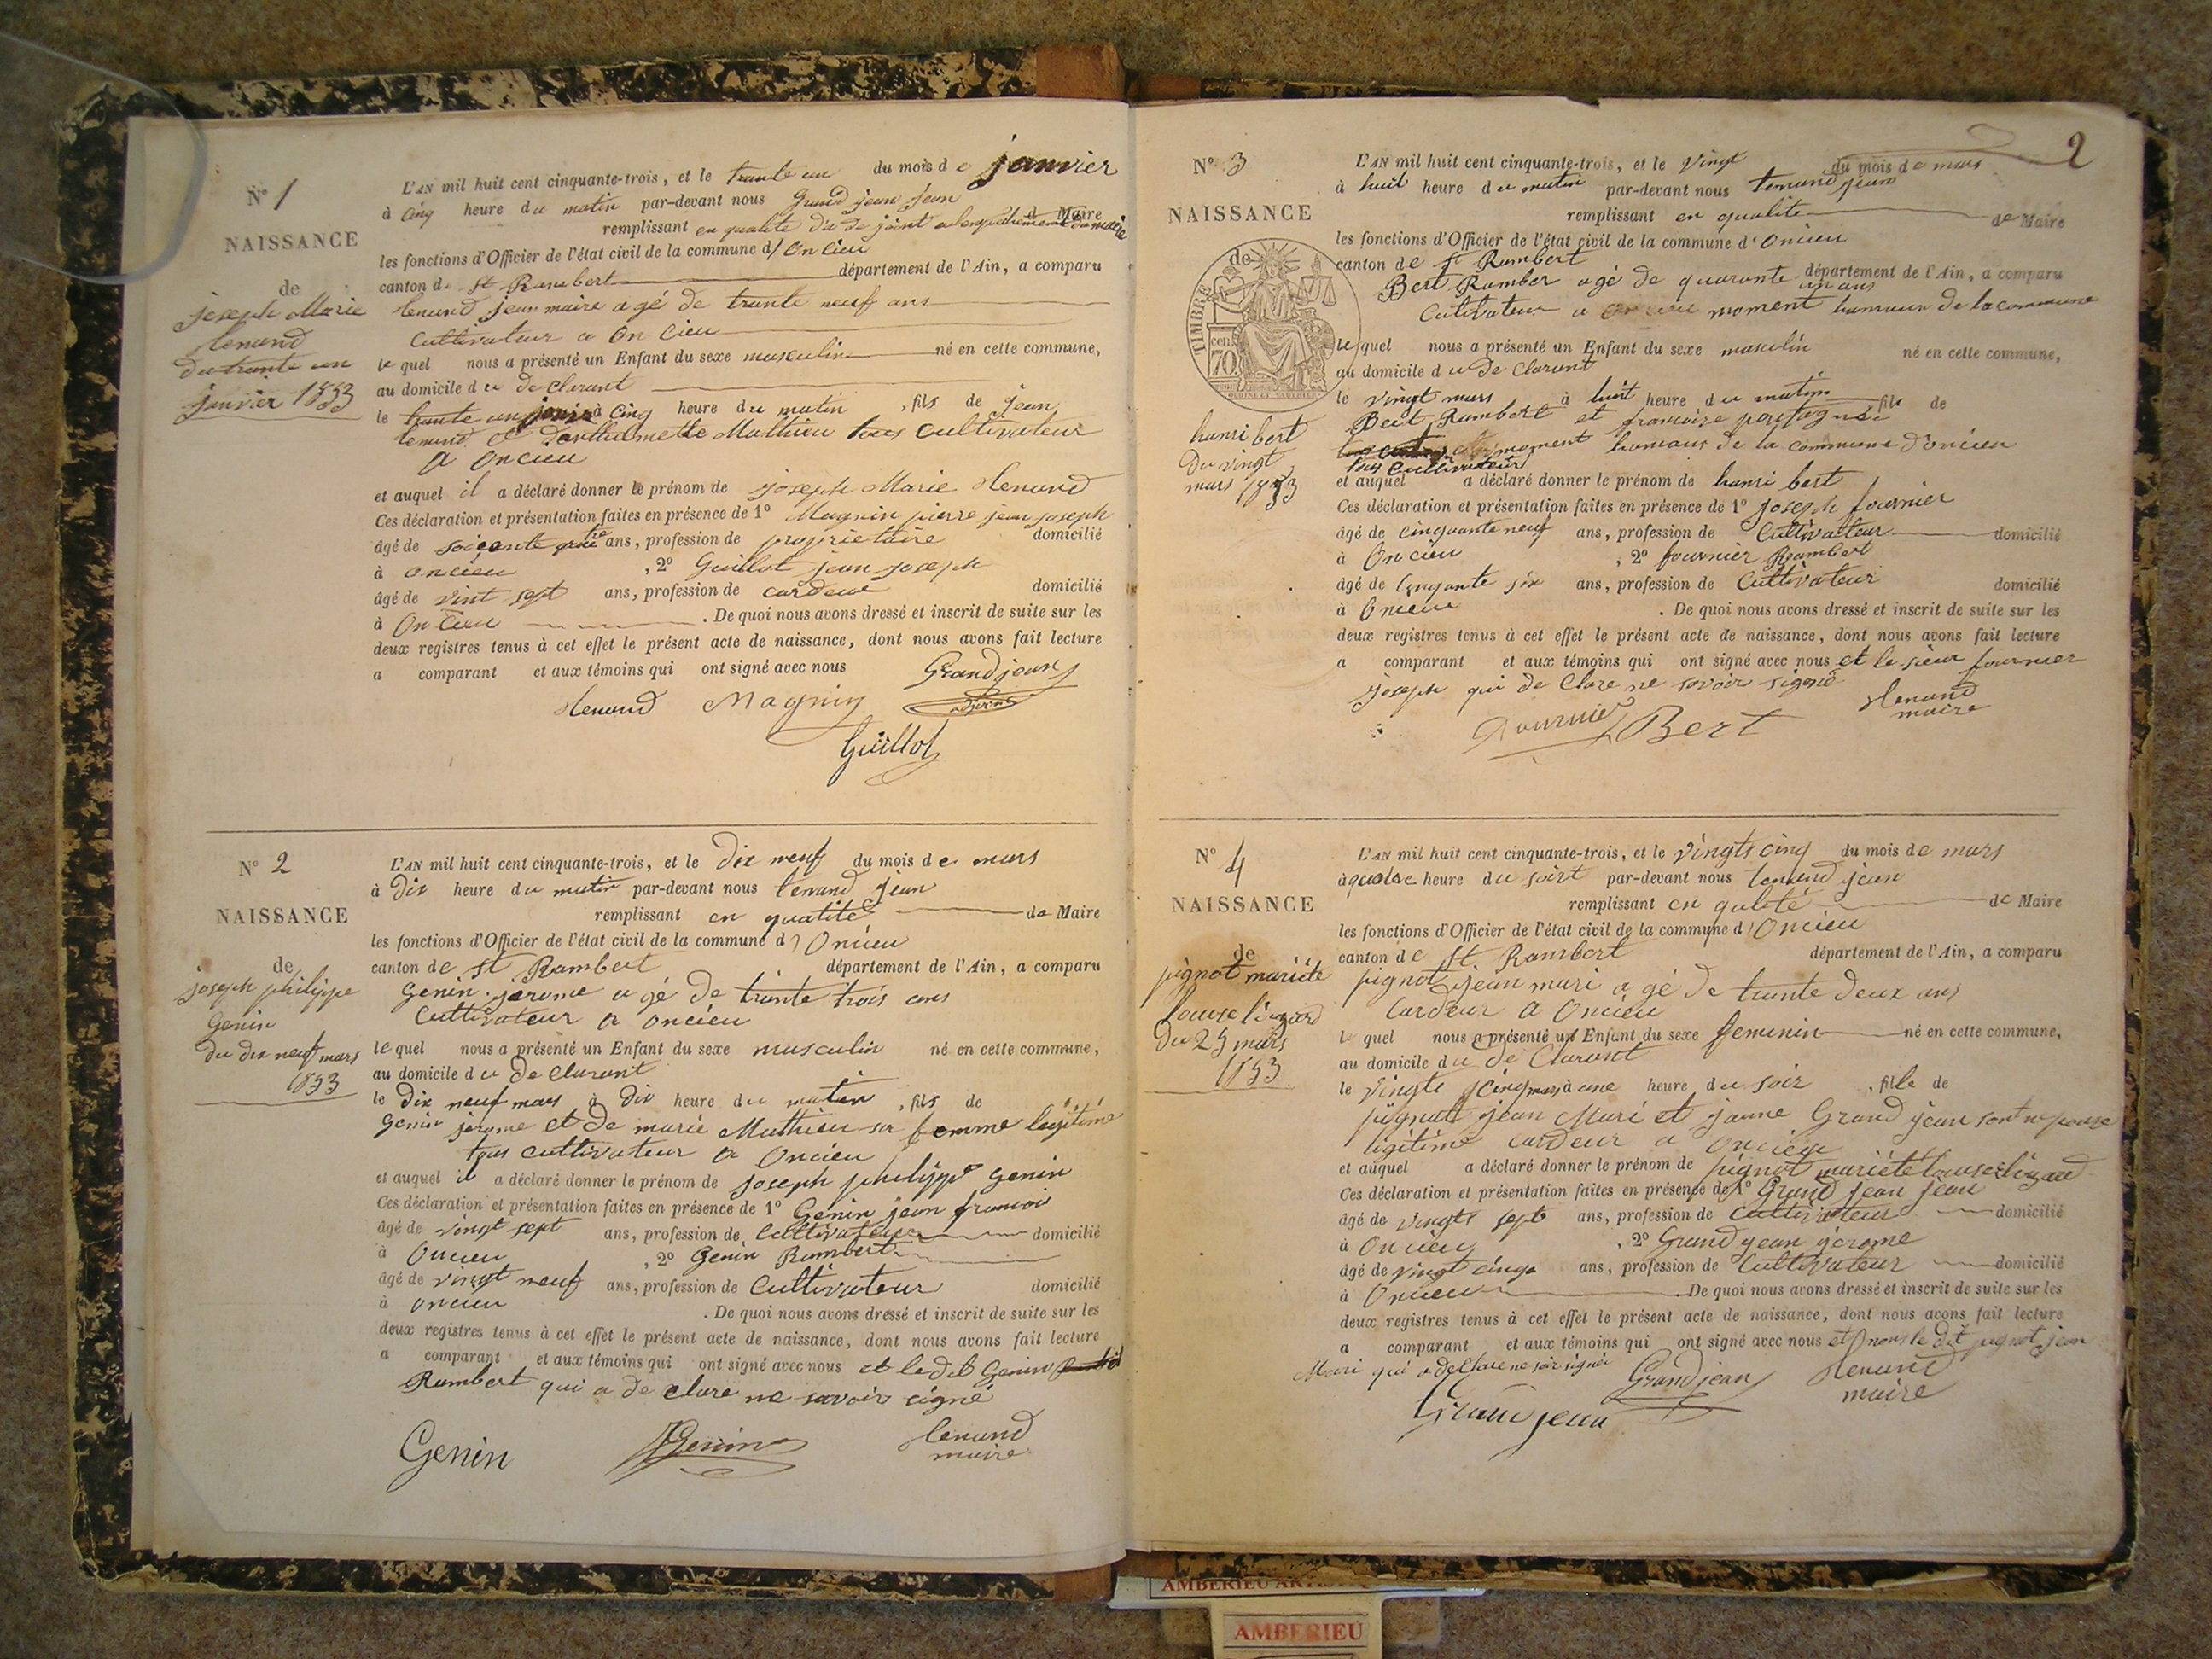 N° 1
NAISSANCE
de
joseph Marie
tenand
du trante un
janvier 1853
L'AN mil huit cent cinquante-trois, et le trante un du mois de janvier
à cinq heure du matin par-devant nous Grand jean jean
remplissant en qualité d'adjoint a lempechement du maire d Maire
les fonctions d'Officier de l'état civil de la commune d'Oncieu
canton d. St Rambert département de l'Ain, a comparu
tenand jean maire agé de trante neuf ans
Cultivateur a On cieu
le quel nous a présenté un Enfant du sexe masculin né en cette commune,
au domicile du de Clarant
le trante un janvier à cinq heure du matin, fils de jean
tenand et Mathieu tous cultivateur
a Oncieu
et auquel il a déclaré donner le prénom de joseph Marie tenand
Ces déclaration et présentation faites en présence de 1° Magnin pierre jean joseph
âgé de soiçante ans, profession de proprietaire domicilié
à oncieu, 2° Guillot jean joseph
âgé de vint sept ans, profession de cardeur domicilié
à On Cieu. De quoi nous avons dressé et inscrit de suite sur les
deux registres tenus à cet effet le présent acte de naissance, dont nous avons fait lecture
a comparant et aux témoins qui ont signé avec nous
Grandjean
tenand Magnin adjoint
Guillot
N° 2
NAISSANCE
de
joseph philippe
Genin
du dix neuf mars
1853
L'AN mil huit cent cinquante-trois, et le Dix neuf du mois de mars
à Dix heure du matin par-devant nous tenand jean
remplissant en qualité de Maire
les fonctions d'Officier de l'état civil de la commune d'Oncieu
canton de St Rambert département de l'Ain, a comparu
Genin jerome a gé de trante trois ans
Cultivateur a Oncieu
le quel nous a présenté un Enfant du sexe masculin né en cette commune,
au domicile du de Clarant
le Dix neuf mars à Dix heure du matin, fils de
Genin jerome et de marie Mathieu sa femme legitime
tous cultivateur a Oncieu
et auquel il a déclaré donner le prénom de joseph philippe Genin
Ces déclaration et présentation faites en présence de 1° Genin jean francois
âgé de vingt sept ans, profession de Cultivateur domicilié
à Oncieu, 2° Genin Rambert
âgé de vingt neuf ans, profession de Cultivateur domicilié
à oncieu. De quoi nous avons dressé et inscrit de suite sur les
deux registres tenus à cet effet le présent acte de naissance, dont nous avons fait lecture
a comparant et aux témoins qui ont signé avec nous et le dit Genin
Rambert qui a de clare ne savoir signé
Genin Genin tenand
maire
2
N° 3
NAISSANCE
de
TIMBRE
cen
70
hanri bert
du vingt
mars 1853
L'AN mil huit cent cinquante-trois, et le Vingt du mois de mars
à huit heure du matin par-devant nous tenand jean
remplissant en qualite de Maire
les fonctions d'Officier de l'état civil de la commune d'Oncieu
canton de St Rambert département de l'Ain, a comparu
Bert Ramber agé de quarante un ans
Cultivateur a moment hamaux de la commune
le quel nous a présenté un Enfant du sexe masculin né en cette commune,
au domicile du de Clarant
le vingt mars à huit heure du matin fils de
Bert Rambert et francoise
moment hamaux de la commune d'oncieu
tous cultivateur
et auquel a déclaré donner le prénom de hanri bert
Ces déclaration et présentation faites en présence de 1° joseph fournier
âgé de cinquante neuf ans, profession de Cultivateur domicilié
à Oncieu, 2° fournier Rambert
âgé de six ans, profession de Cultivateur domicilié
à Oncieu. De quoi nous avons dressé et inscrit de suite sur les
deux registres tenus à cet effet le présent acte de naissance, dont nous avons fait lecture
a comparant et aux témoins qui ont signé avec nous et le sieur fournier
joseph qui de Clare ne savoir signé
tenand
maire
fournier Bert
N° 4
NAISSANCE
de
pignot mariéte
du 25 mars
1853
L'AN mil huit cent cinquante-trois, et le vingts cinq du mois de mars
à heure du soirt par-devant nous tenand jean
remplissant en de Maire
les fonctions d'Officier de l'état civil de la commune d'Oncieu
canton de St Rambert département de l'Ain, a comparu
pignot jean mari a gé de trante deux ans
Cardeur a Oncieu
le quel nous a présenté un Enfant du sexe feminin né en cette commune,
au domicile du de Clarant
le Vingts cinq mars à une heure du soir, fille de
pignot jean Mari et janne Grand jean
legitime cardeur a oncieu
et auquel a déclaré donner le prénom de pignot mariéte
Ces déclaration et présentation faites en présence de 1° Grand jean jean
âgé de vingts sept ans, profession de Cultivateur domicilié
à On cieu, 2° Grand jean gerome
âgé de vingt cinqe ans, profession de Cultivateur domicilié
à Oncieu. De quoi nous avons dressé et inscrit de suite sur les
deux registres tenus à cet effet le présent acte de naissance, dont nous avons fait lecture
a comparant et aux témoins qui ont signé avec nous et nons le dit pignot jean
Mari qui a declare ne soir signé
Grandjean tenand
maire
Grand jean
AMBERIEU
AMBERIEU